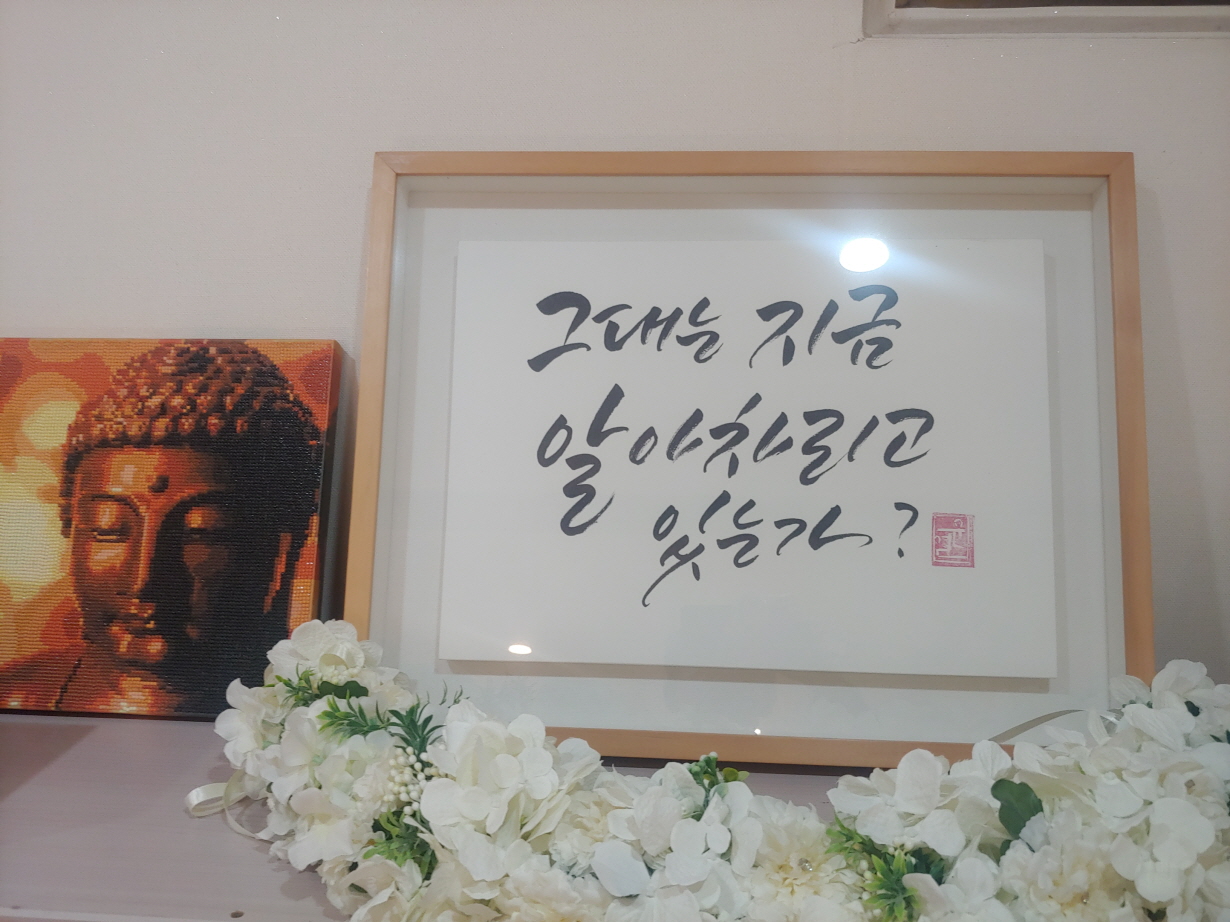 그대는 지금
알아차리고
있는가?